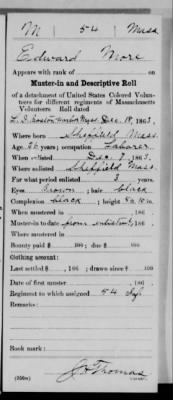 M | 54 | Mass
Edward More
Appears with rank of
Muster-in and Descriptive Roll
of a detachment of United States Colored Volun-
teers for different regiments of Massachusetts
Volunteers. Roll dated
Boston Harbor Mass. Dec. 18, 1863.
Where born Sheffield Mass.
Age 36 years; occupation Laborer
When enlisted Dec. 7, 1863.
Where enlisted Sheffield Mass.
For what period enlisted 3 years.
Eyes brown; hair black
Complexion black; height ft. in.
When mustered in , 186 .
Muster-in to date from enlistmt, 186 .
Where mustered in
Bounty paid $ 100; due $ 100
Clothing account:
Last settled , 186 ; drawn since $ 100
Date of first muster , 186 .
Regiment to which assigned 54 Inf
Remarks:
Book mark:
Thomas
(356m)